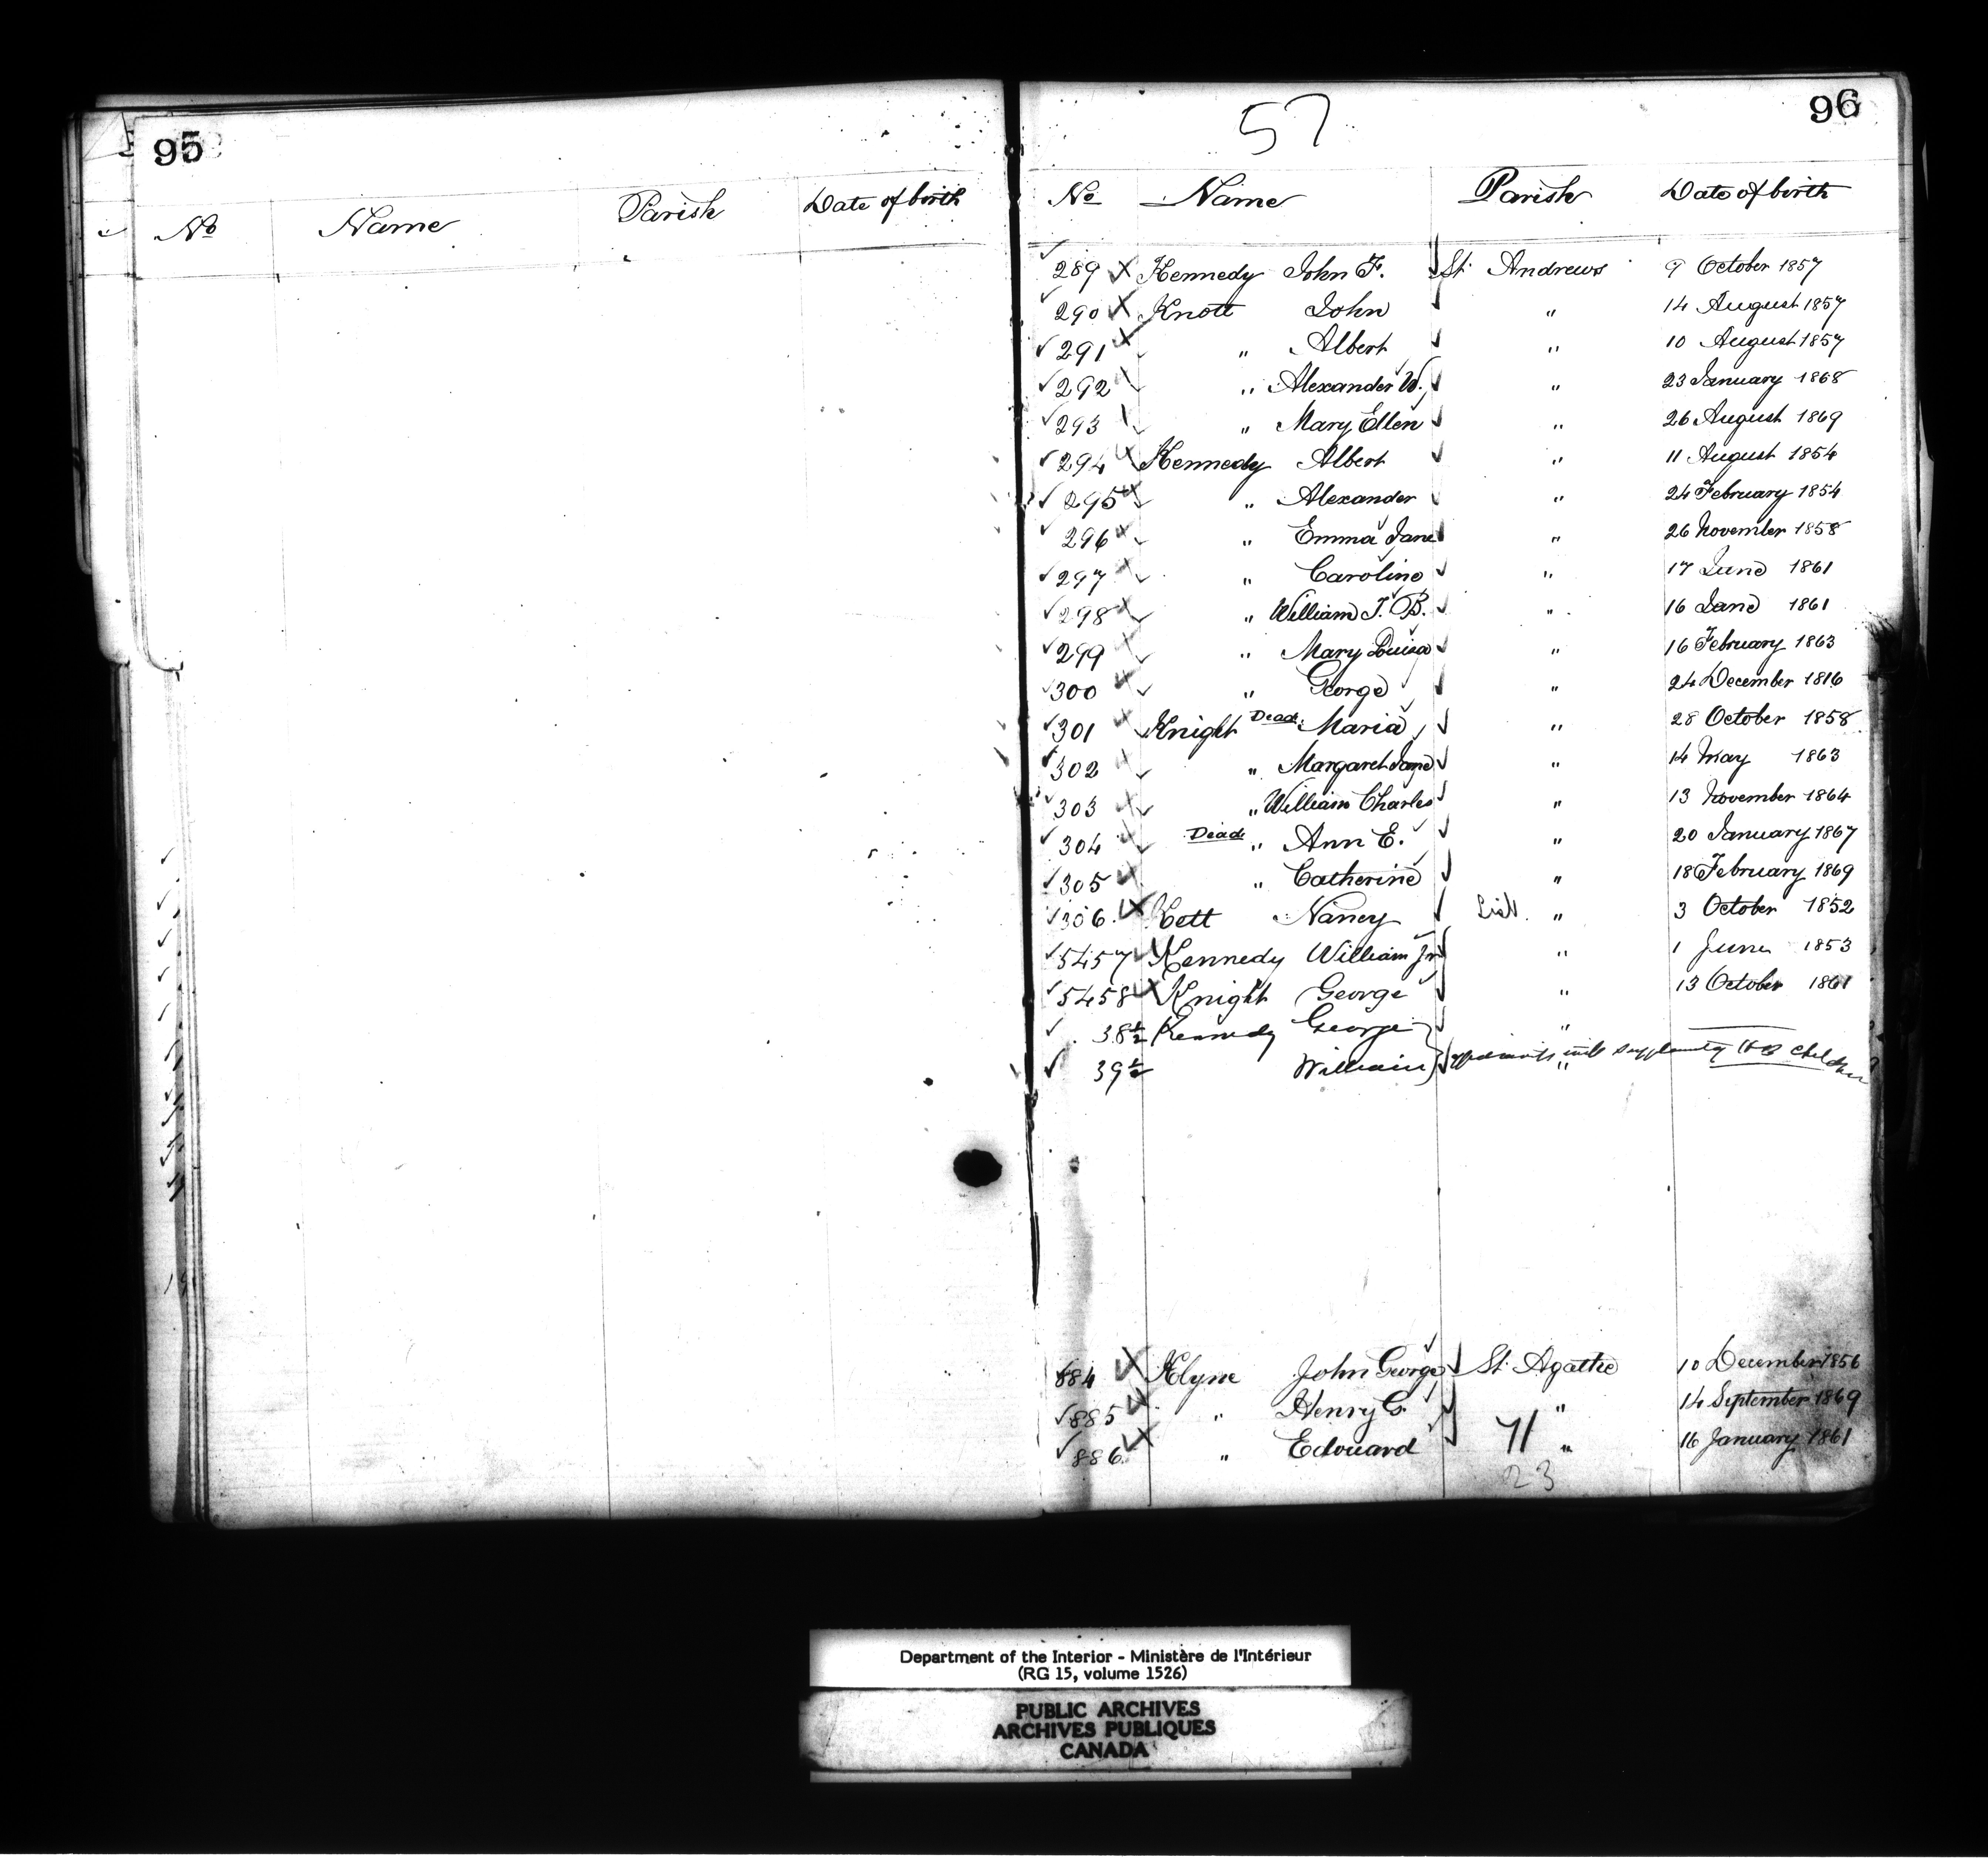 95
No Name Parish Date of birth
57
96
No Name Parish Date of birth
289 Kennedy John F. St. Andrews 9 October 1857
290 Knott John " 14 August 1857
291 " Albert " 10 August 1857
292 " Alexander W. " 23 January 1868
293 " Mary Ellen " 26 August 1869
294 Kennedy Albert " 11 August 1854
295 " Alexander " 24 February 1854
296 " Emma Jane " 26 November 1858
297 " Caroline " 17 June 1861
298 " William J. B. " 16 June 1861
299 " Mary Louisa " 16 February 1863
300 " George " 24 December 1816
301 Knight Dead Maria " 28 October 1858
302 " Margaret Jane " 14 May 1863
303 " William Charles " 13 November 1864
304 Dead " Ann E. " 20 January 1867
305 " Catherine " 18 February 1869
306 Kett Nancy " 3 October 1852
5457 Kennedy William Jr " 1 June 1853
5458 Knight George " 13 October 1861
38½ Kennedy George "
39½ William " with supplementary HB children
884 Klyne John George St. Agathe 10 December 1856
885 " Henry G. " 14 September 1869
886 " Edouard 71 " 16 January 1861
23
Department of the Interior - Ministère de l'Intérieur
(RG 15, volume 1526)
PUBLIC ARCHIVES
ARCHIVES PUBLIQUES
CANADA